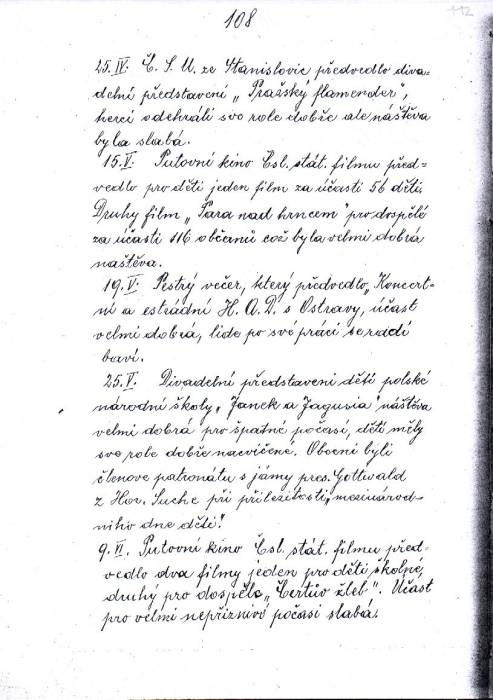 108
112
25. IV. Č. S. M. ze Stanislovic předvedlo diva=
delní představení „Pražský flamender",
herci odehráli svo role dobře ale náštěva
byla slabá.
15. V. Putovní kino Čsl. stát. filmu před=
vedlo pro děti jeden film za účasti 56 dětí.
Druhy film „Pára nad hrncem" pro dospělé
za účasti 116 občanů což byla velmi dobrá
naštěva.
19. V. Pestrý večer, který předvedlo „Koncert-
ní a estrádní H. A. D. s Ostravy, účast
velmi dobrá, lide po své práci se rádi
baví.
25. V. Divadelní představeni dětí polské
národní školy „Janek a Jagusia" náštěva
velmi dobrá pro špatné počasí, děti měly
svo role dobře nacvičene. Obecní byli
členove patronátu s jámy pres. Gottwald
z Hor. Suche při přiležitosti „mezinárod-
niho dne děti".
9. VI. Putovní kino Čsl. stát. filmu před-
vedlo dva filmy jeden pro děti školné,
druhý pro dospěle „Čertův žleb". Učast
pro velmi nepřiznivo počasi slabá.